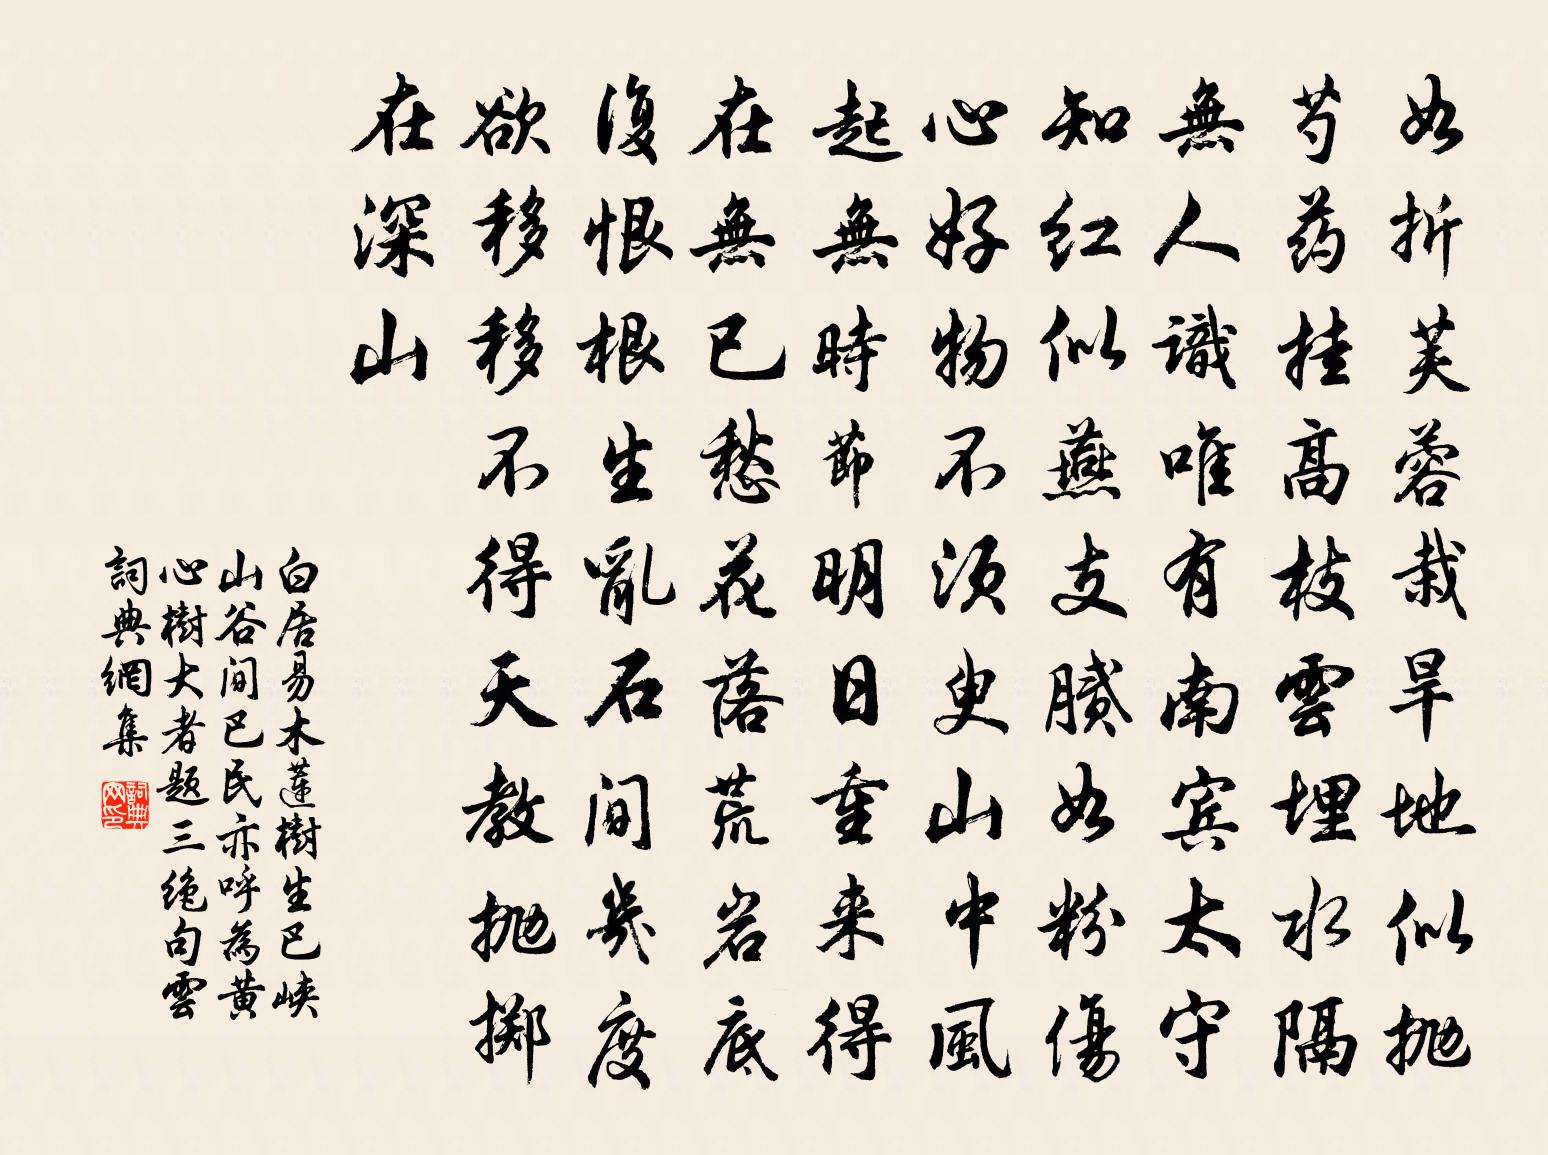 如折芙蓉栽旱地似抛
芍药挂高枝雲埋水隔
無人識唯有南宾太守
知红似燕支膩如粉傷
心好物不须臾山中風
起無時節明日重来得
在無已愁花落荒岩底
復恨根生亂石间幾度
欲移移不得天教抛掷
在深山
白居易木蓮樹生巴峡
山谷间巴民亦呼為黄
心樹大者题三绝句雲
詞典網集
詞典网印